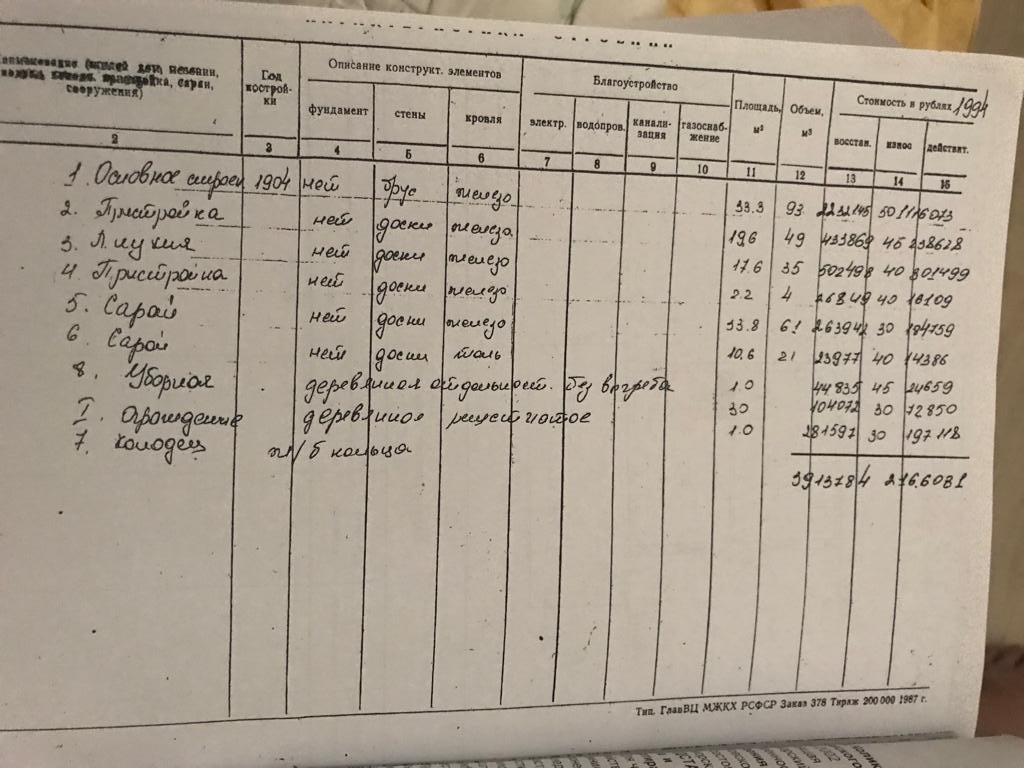 Наименование (жилой дом, мезонин, пристройка, сараи, сооружения)
Год построй-ки
Описание конструкт. элементов
фундамент стены кровля
Благоустройство
электр. водопров. канали-зация газоснаб-жение
Площадь, м²
Объем, м³
Стоимость в рублях 1994
восстан. износ действит.
2 3 4 5 6 7 8 9 10 11 12 13 14 15
1. Основное строен 1904 нет брус железо 33.3 93 2232145 50 1116073
2. Пристройка нет доски железо 19.6 49 433869 45 238628
3. Л. кухня нет доски железо 17.6 35 502498 40 301499
4. Пристройка нет доски железо 2.2 4 26849 40 16109
5. Сарай нет доски железо 33.8 61 263942 30 184759
6. Сарай нет доски толь 10,6 21 23977 40 14386
8. Уборная деревянная без выгреба 1.0 44835 45 24659
I. Ограждение деревянное решетчатое 30 104072 30 72850
7. Колодец ж/б кольца 1.0 281597 30 197118
3913784 2166081
Тип. ГлавВЦ МЖКХ РСФСР Заказ 378 Тираж 200 000 1987 г.